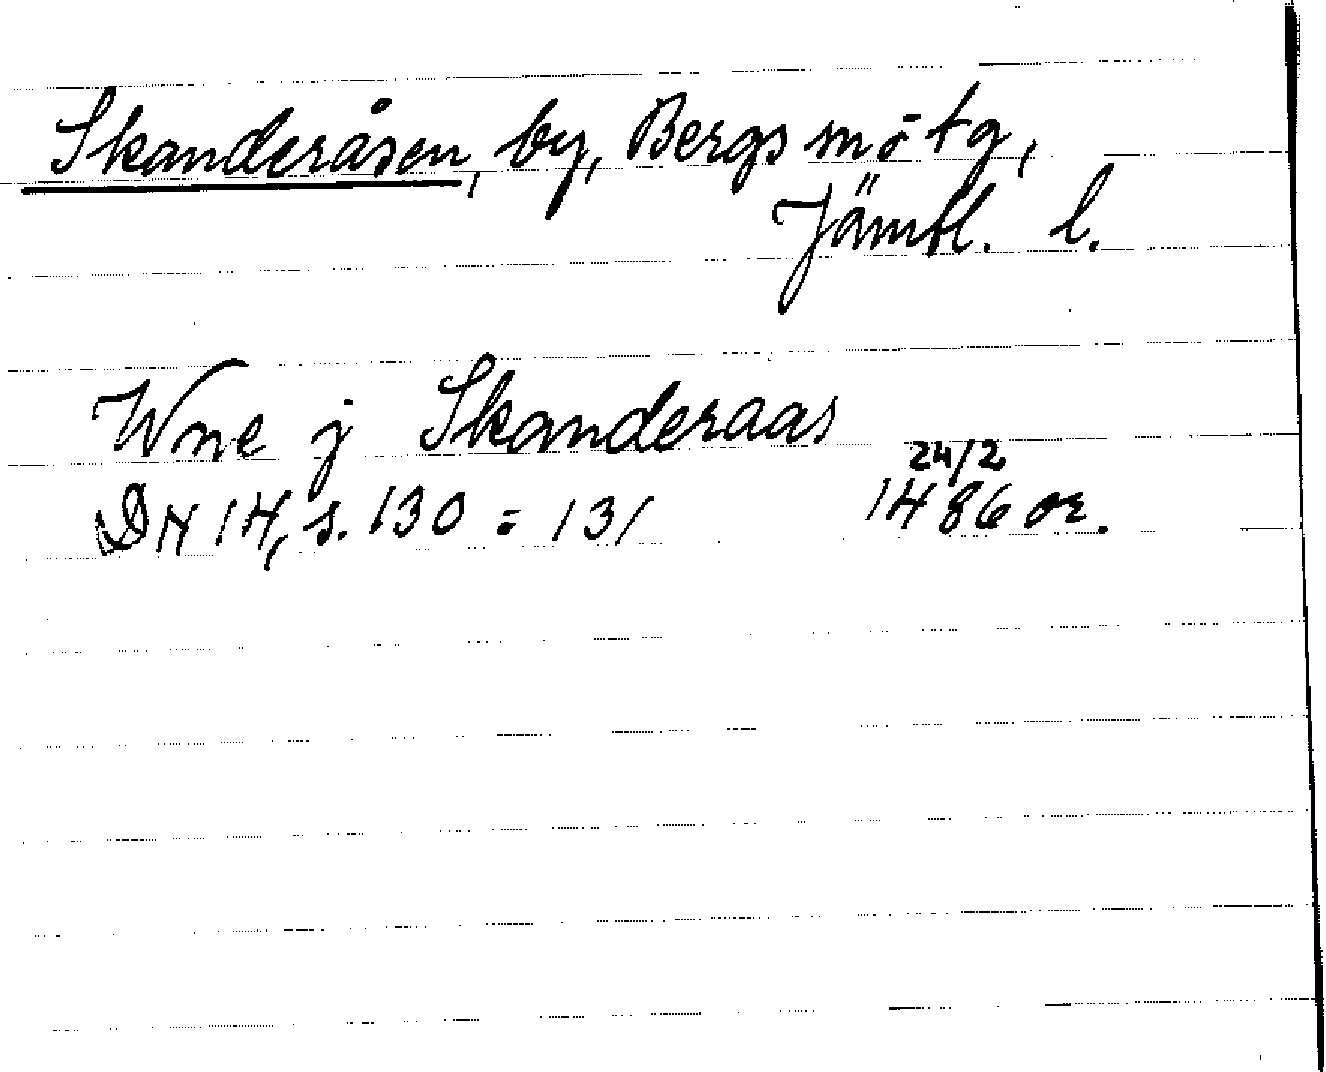 Skanderåsen, by, Bergs sn ö tg,
Jämtl. l.
Wne j Skanderaas
24/2
DN 14, s. 130 - 131 1486 or.